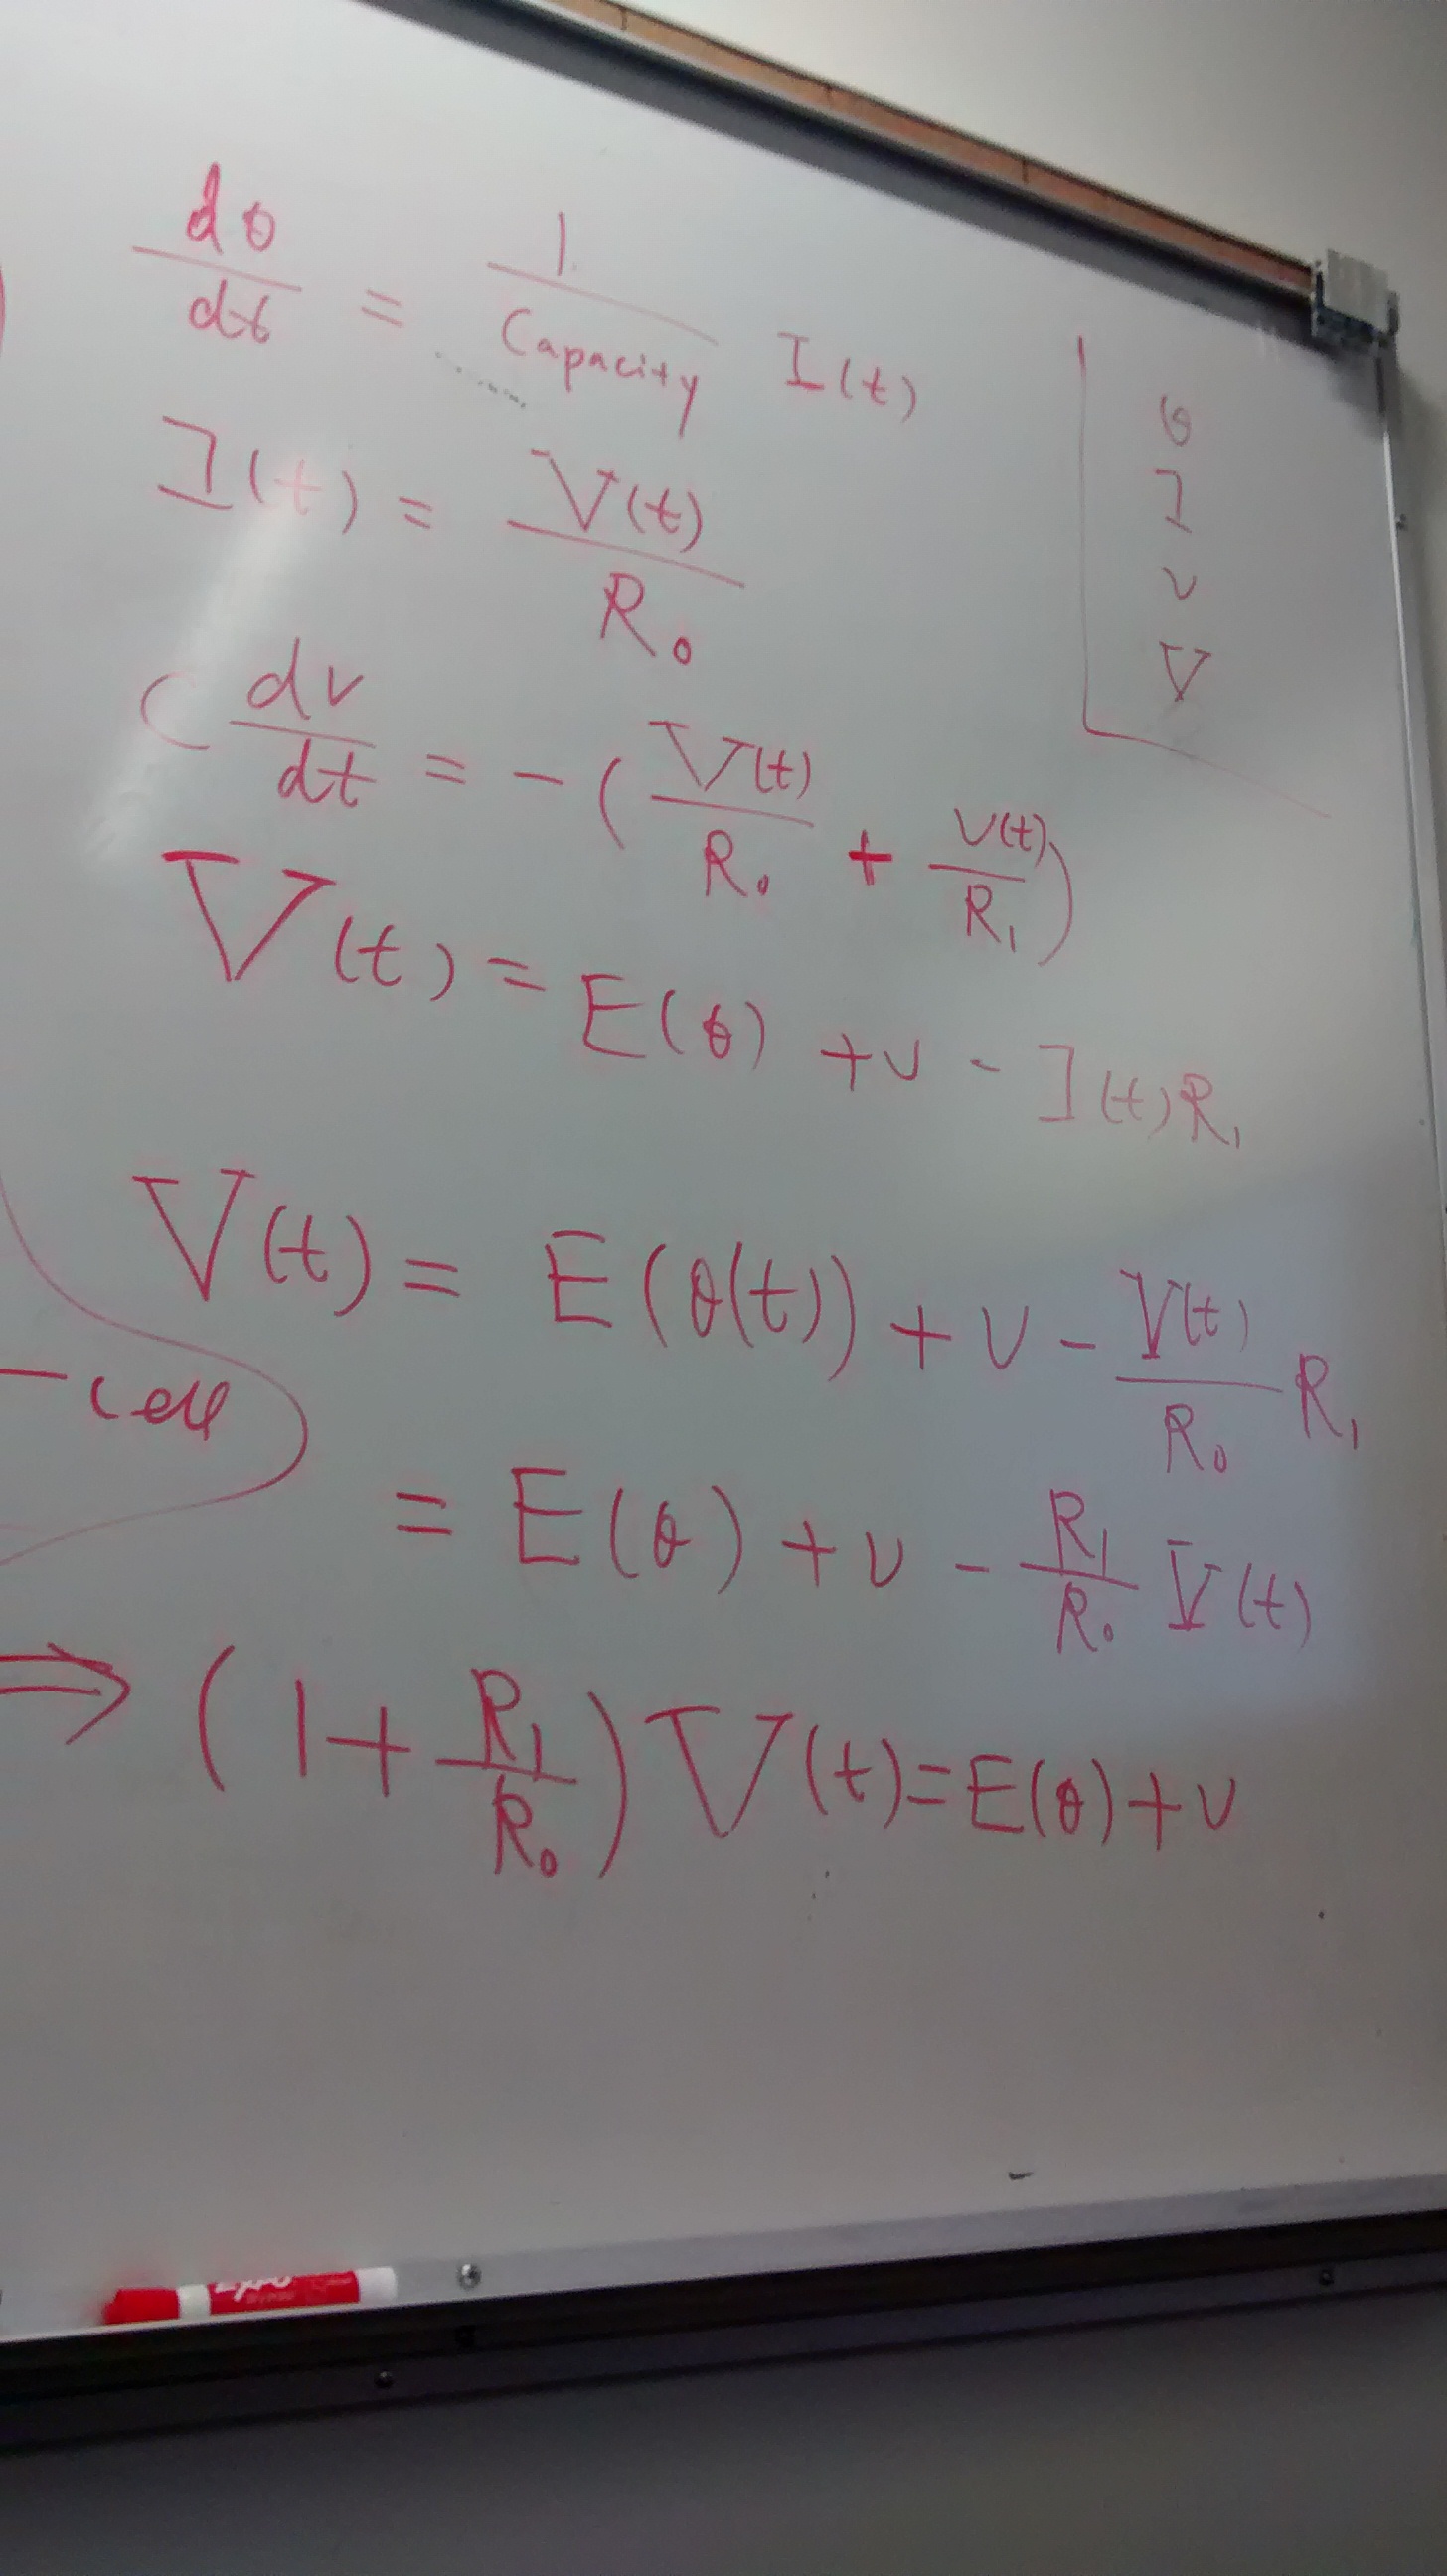 dθ/dt = 1/Capacity I(t)
I(t) = V(t)/R₀
C dv/dt = - (V(t)/R₀ + v(t)/R₁)
V(t) = E(θ) + v - I(t)R₁
V(t) = E(θ(t)) + v - V(t)/R₀ R₁
= E(θ) + v - R₁/R₀ V(t)
⇒ (1 + R₁/R₀) V(t) = E(θ) + v
θ
I
v
V
- cell
Expo